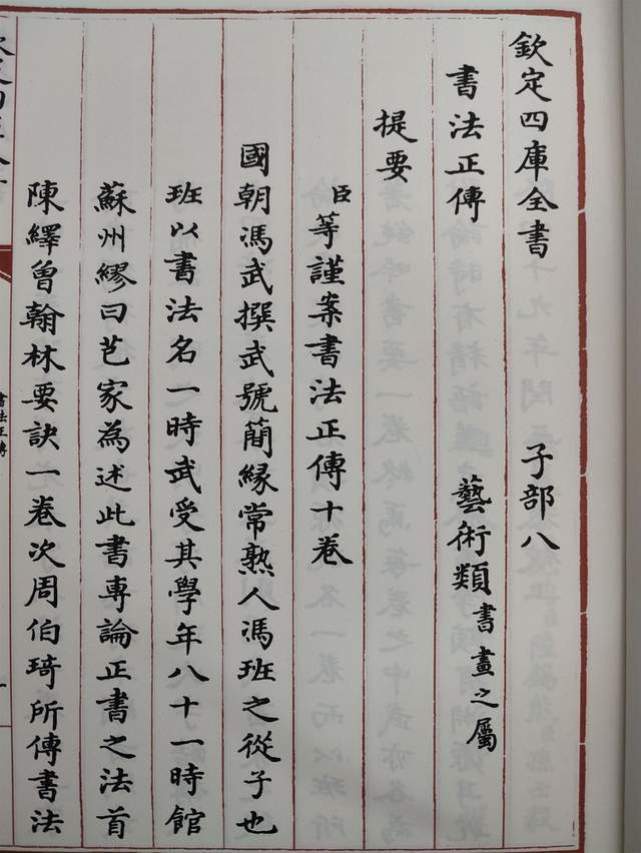 欽定四庫全書　子部八
書法正傳　藝術類書畫之屬
提要
臣等謹案書法正傳十卷
國朝馮武撰武號簡縁常熟人馮班之從子也
班以書法名一時武受其學年八十一時館
蘇州繆曰芑家為述此書專論正書之法首
陳繹曾翰林要訣一卷次周伯琦所傳書法
書法正傳